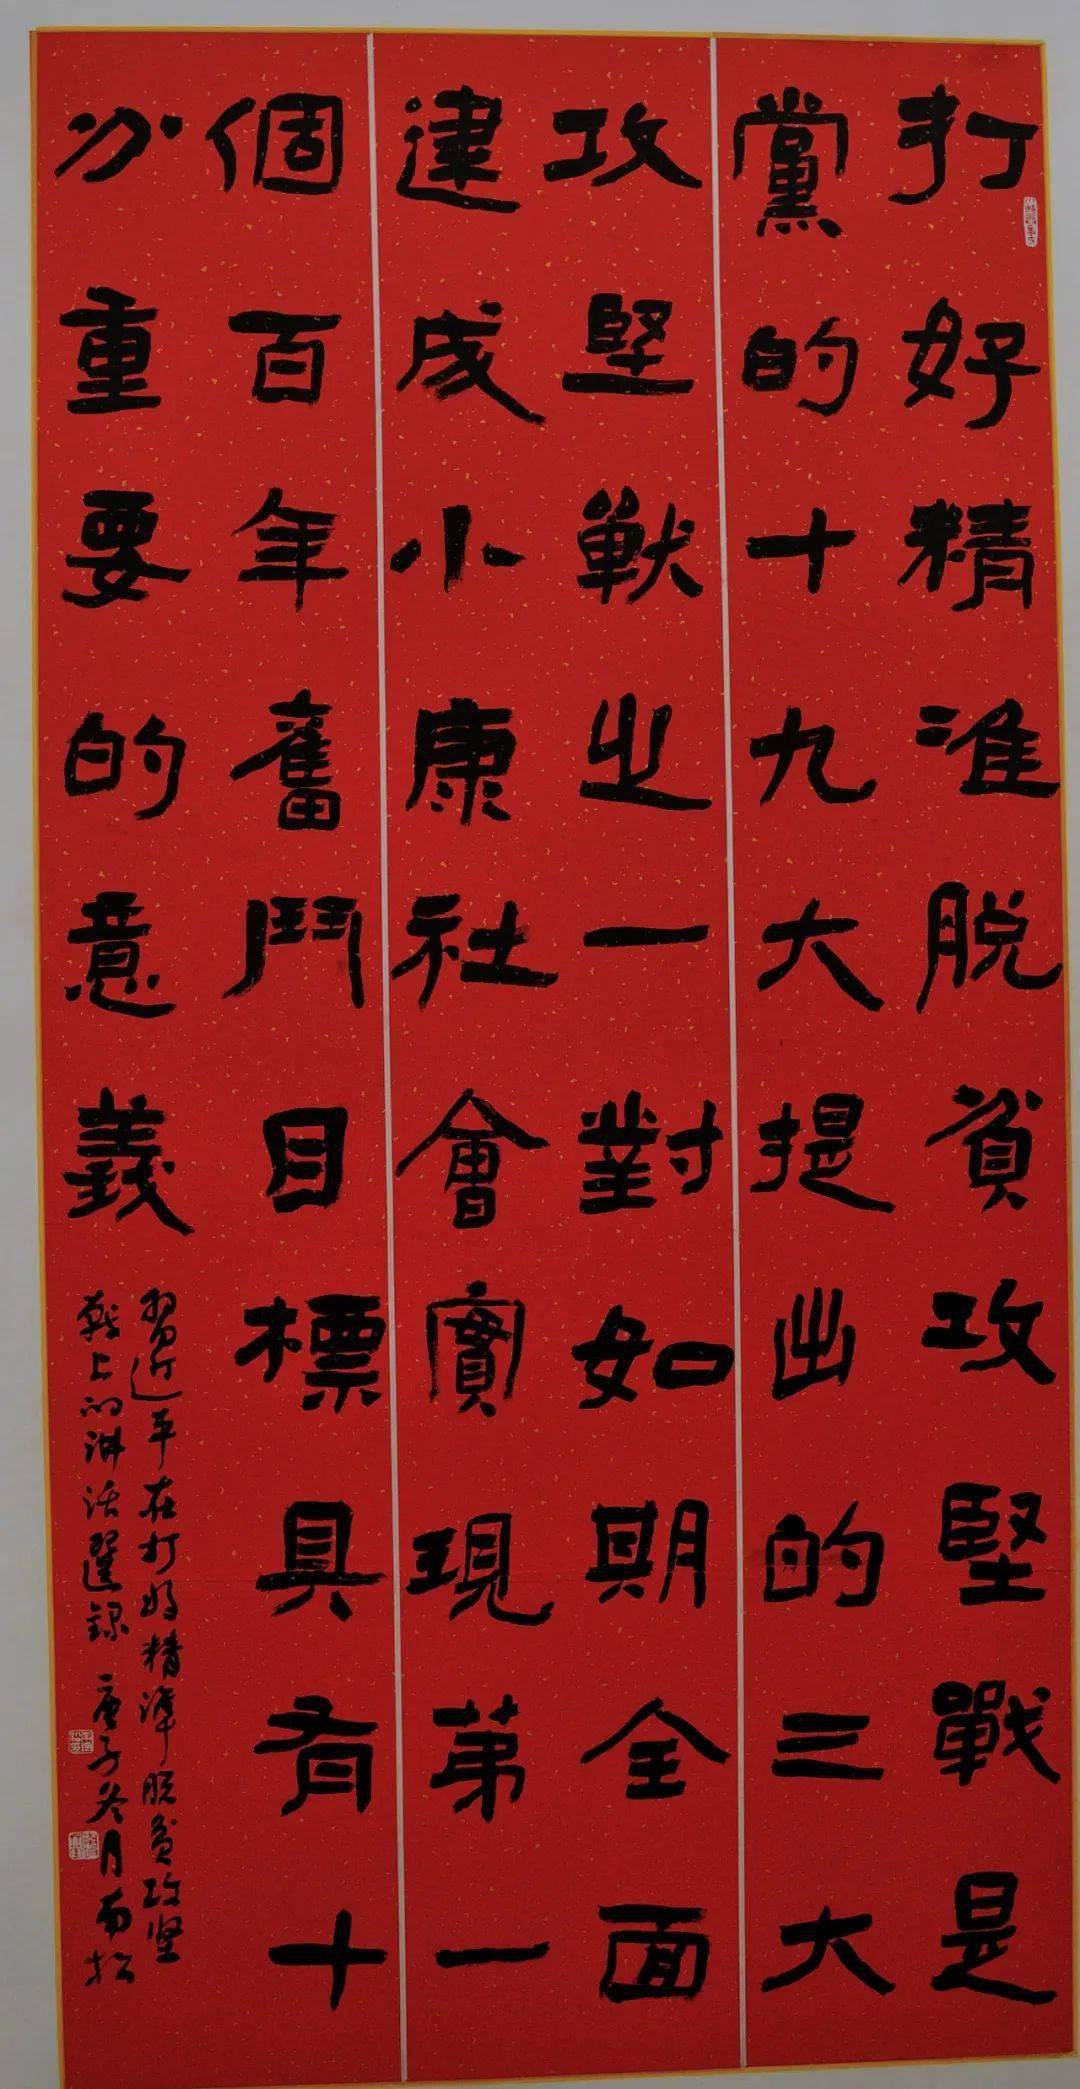 打好精准脱貧攻堅戰是
黨的十九大提出的三大
攻堅戰之一對如期全面
建成小康社會實現第一
個百年奮鬥目標具有十
分重要的意義
習近平在打好精準脱貧攻坚
戰上的講话選録 庚子冬月南松